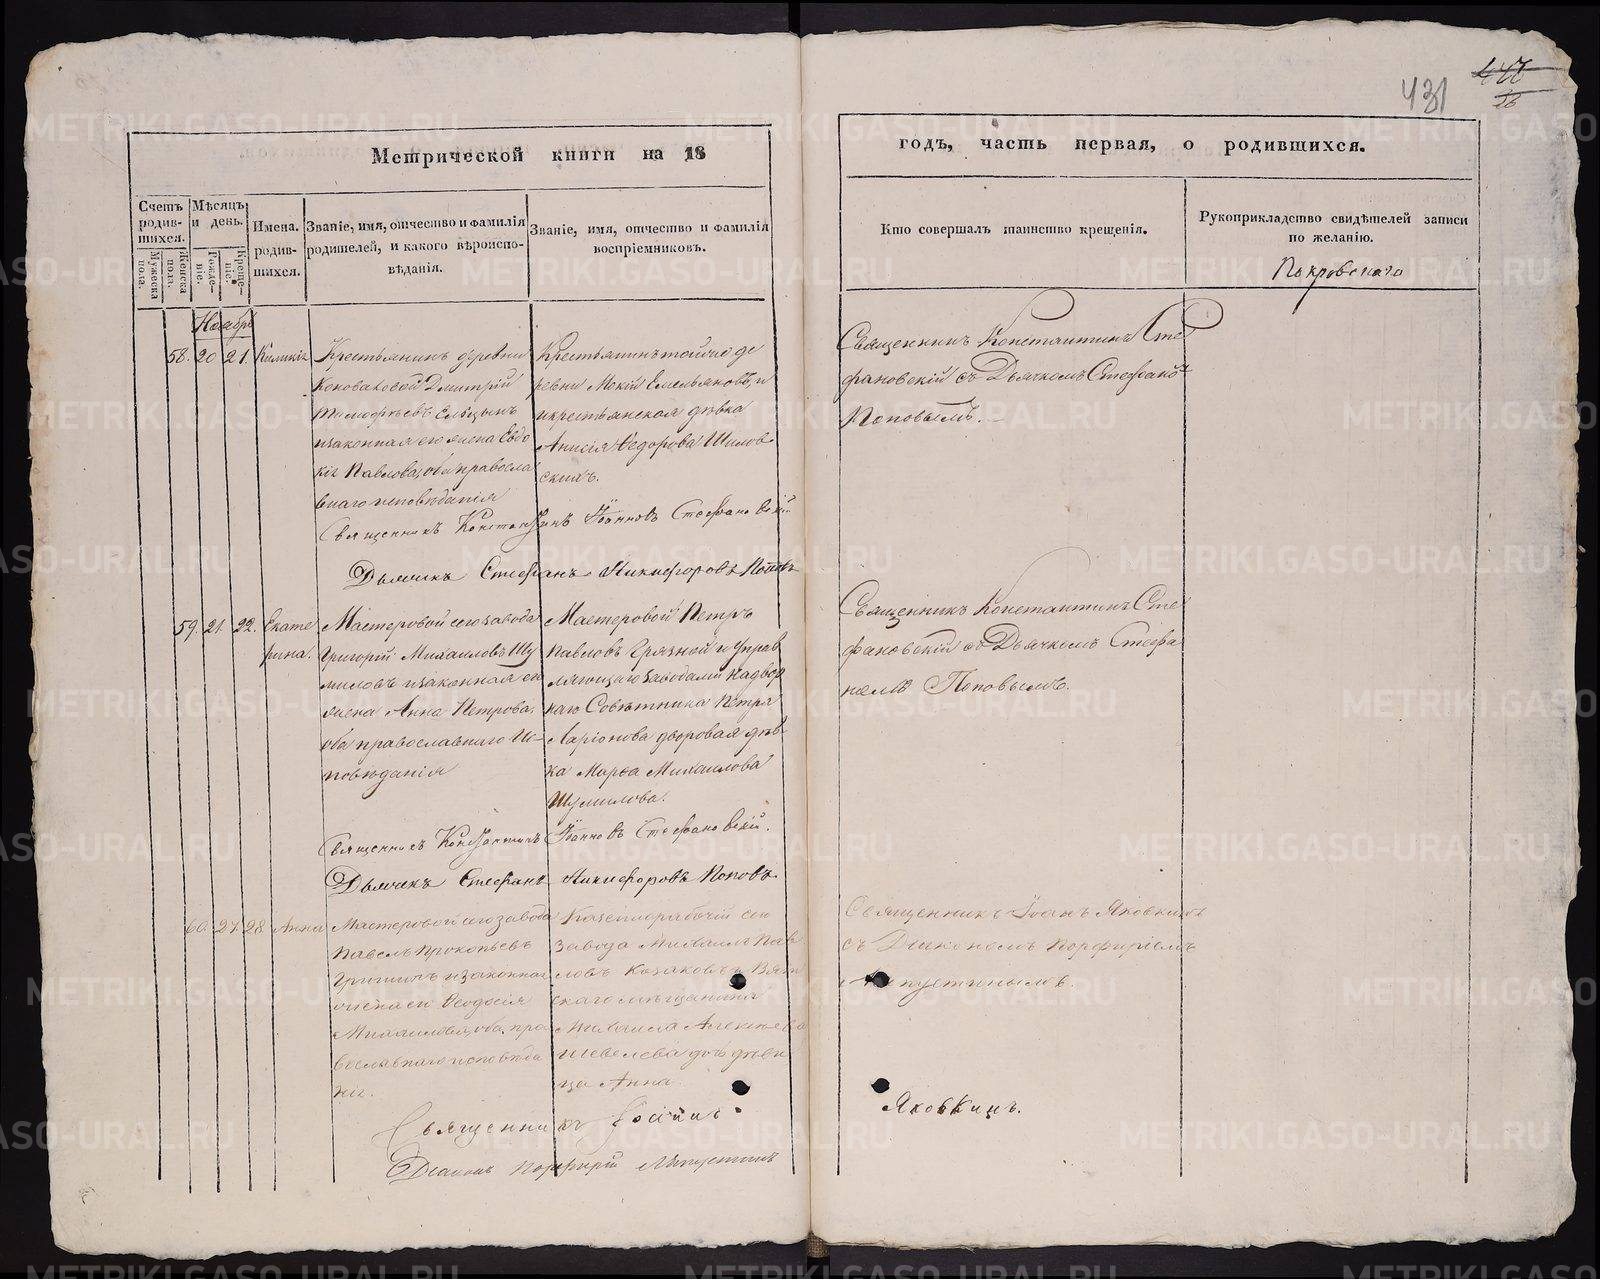 431
Метрической книги на 18
годъ, часть первая, о родившихся.
Счетъ родив-шихся.
Мужеска пола.
Женска пола.
Мѣсяцъ и день.
Рожде-ніе.
Креще-ніе.
Имена. родив-шихся.
Званіе, имя, отчество и фамилія
родителей, и какого вѣроиспо-
вѣданія.
Званіе, имя, отчество и фамилія
воспріемниковъ.
Кто совершалъ таинство крещенія.
Рукоприкладство свидѣтелей записи
по желанію.
Покровскаго
Ноябрь
58. 20 21.
Крестьянинъ деревни
Коноваловой Дмитрій
Тимофѣевъ Ельцынъ
и законная его жена Евдо
кія Павлова, оба правосла
внаго исповѣданія
Крестьянинъ той же де
ревни Мокій Емельяновъ, и
и крестьянская дѣвка
Анисія Ѳедорова Шилов
скихъ.
Священникъ Константинъ Сте
фановскій съ Дьячкомъ Стефано
Поповымъ.
Священникъ Константинъ Іоанновъ Стефановскій
Дьячекъ Стефанъ Никифоровъ Поповъ
59. 21. 22. Екате
рина.
Мастеровой сего завода
Григорій Михаиловъ Шу
миловъ и законная ег
жена Анна Петрова,
оба православнаго Ис-
повѣданія
Мастеровой Петръ
Павловъ Грязной и Управ
ляющаго Заводами Надвор
наго Совѣтника Петра
Ларіонова дворовая дѣв
ка Марѳа Михаилова
Шумилова.
Священникъ Константинъ Сте
фановскій съ Дьячкомъ Стефа
номъ Поповымъ.
Священникъ Константинъ Іоанновъ Стефановскій.
Дьячекъ Стефанъ Никифоровъ Поповъ
60. 27. 28. Анна
Мастеровой сего завода
Павелъ Прокопьевъ
и законная
жена ег Ѳеодосія
Михаилова, оба пра
вославнаго исповѣда
нія.
сего
завода Михаилъ Пав
ловъ Козаковъ и Вят
скаго мѣщанина
Михаила Алексѣева
Шевелева дочь дѣви
ца Анна
Священникъ Іоаннъ Яковкинъ
съ Діакономъ Порфиріемъ
Священникъ
Яковкинъ.
Діаконъ Порфирій
METRIKI.GASO-URAL.RU